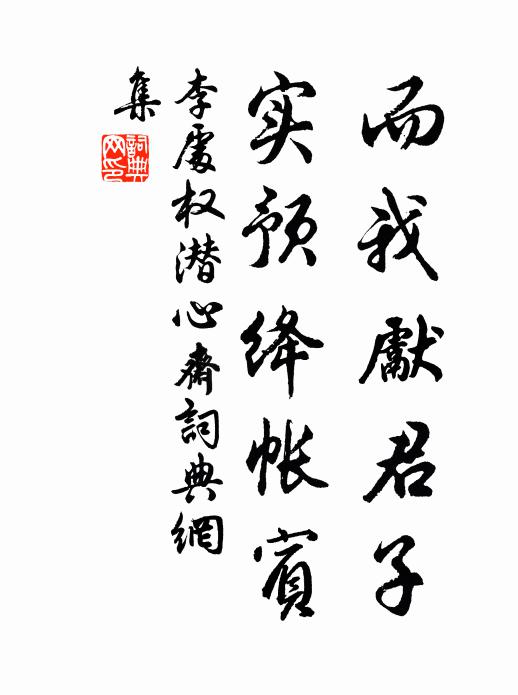 而我獻君子
实预绛帐賓
李處权潜心齋詞典網
集
詞典网印